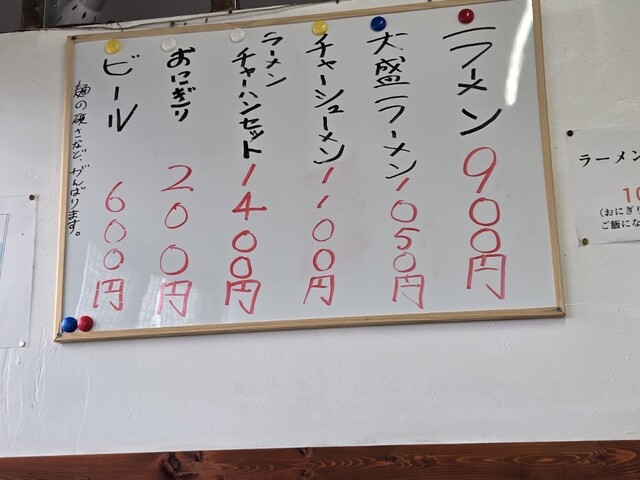 ラーメン 900円
大盛ラーメン 1050円
チャーシューメン 1100円
ラーメン
チャーハンセット 1400円
おにぎり 200円
ビール 600円
麺の硬さなど、がんばります。
ラーメン
10
(おにぎり
ご飯にな